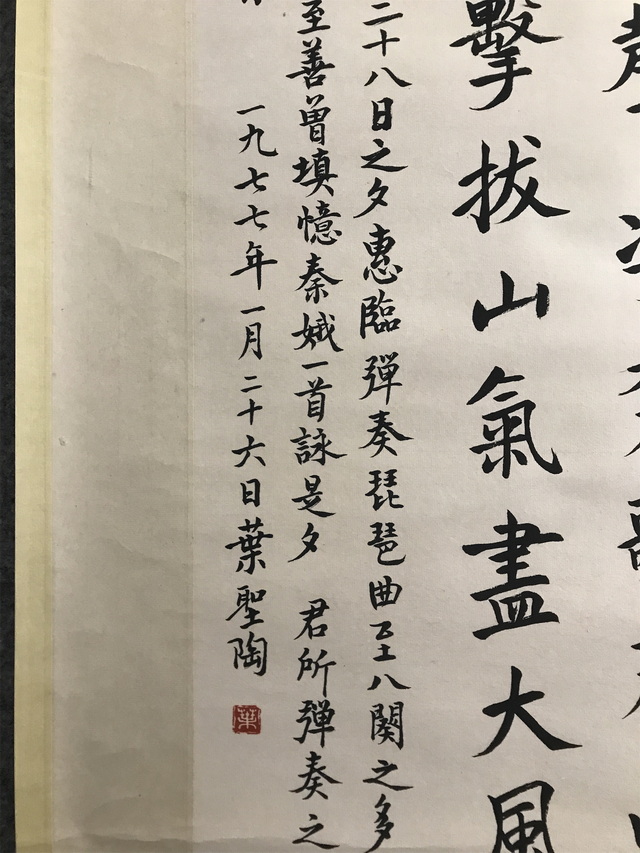 擊拔山氣盡大風
二十八日之夕惠臨彈奏琵琶曲至八闋之多
至善曾填憶秦娥一首詠是夕 君所彈奏之
一九七七年一月二十六日葉聖陶
葉